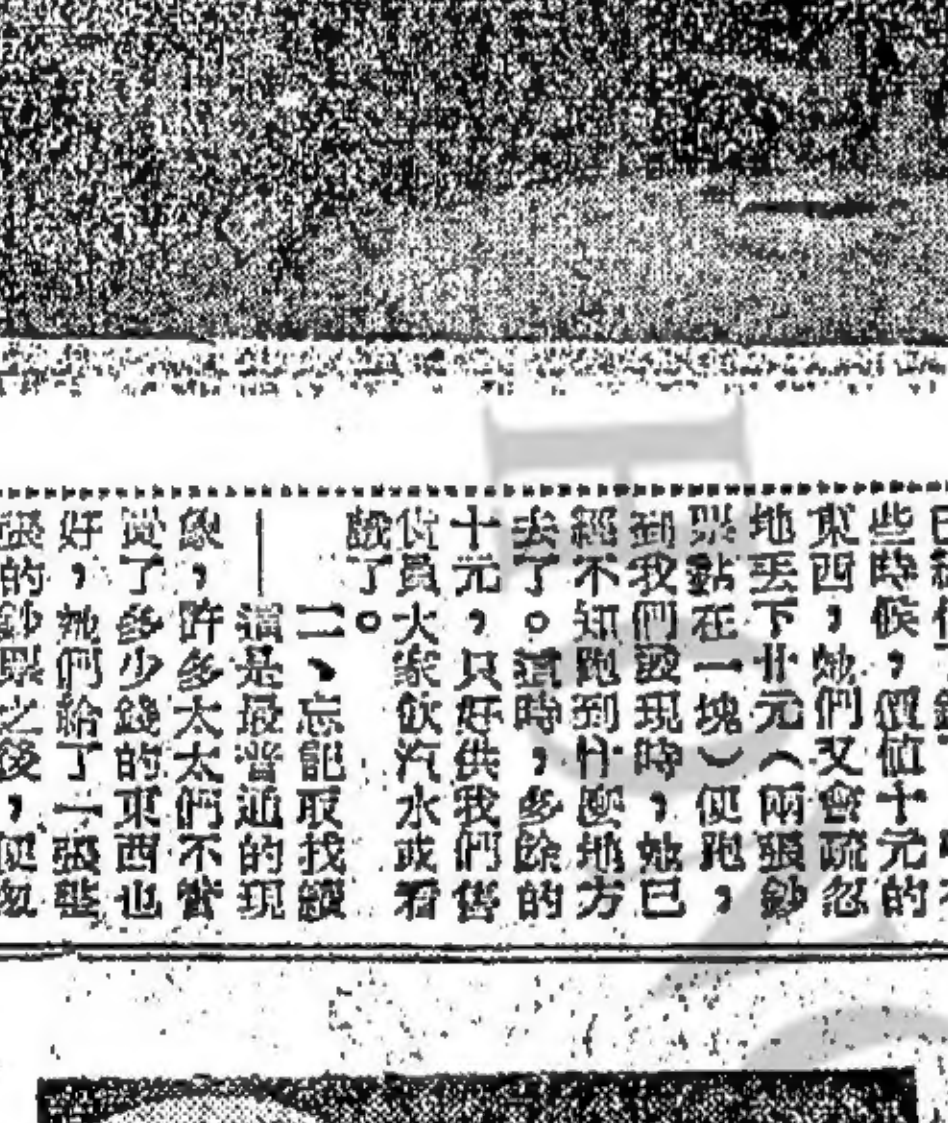 些時候，價值十元的
東西，她們又會疏忽
地丟下廿元（兩張鈔
票黏在一塊）便跑，
到我們發現時，她已
經不知跑到什麼地方
去了。這時，多餘的
十元，只好供我們售
貨員大家飲汽水或看
戲了。
二、忘記取找續
——這是最普通的現
象，許多太太們不管
買了多少錢的東西也
好，她們給了一張整
張的鈔票之後，便忽